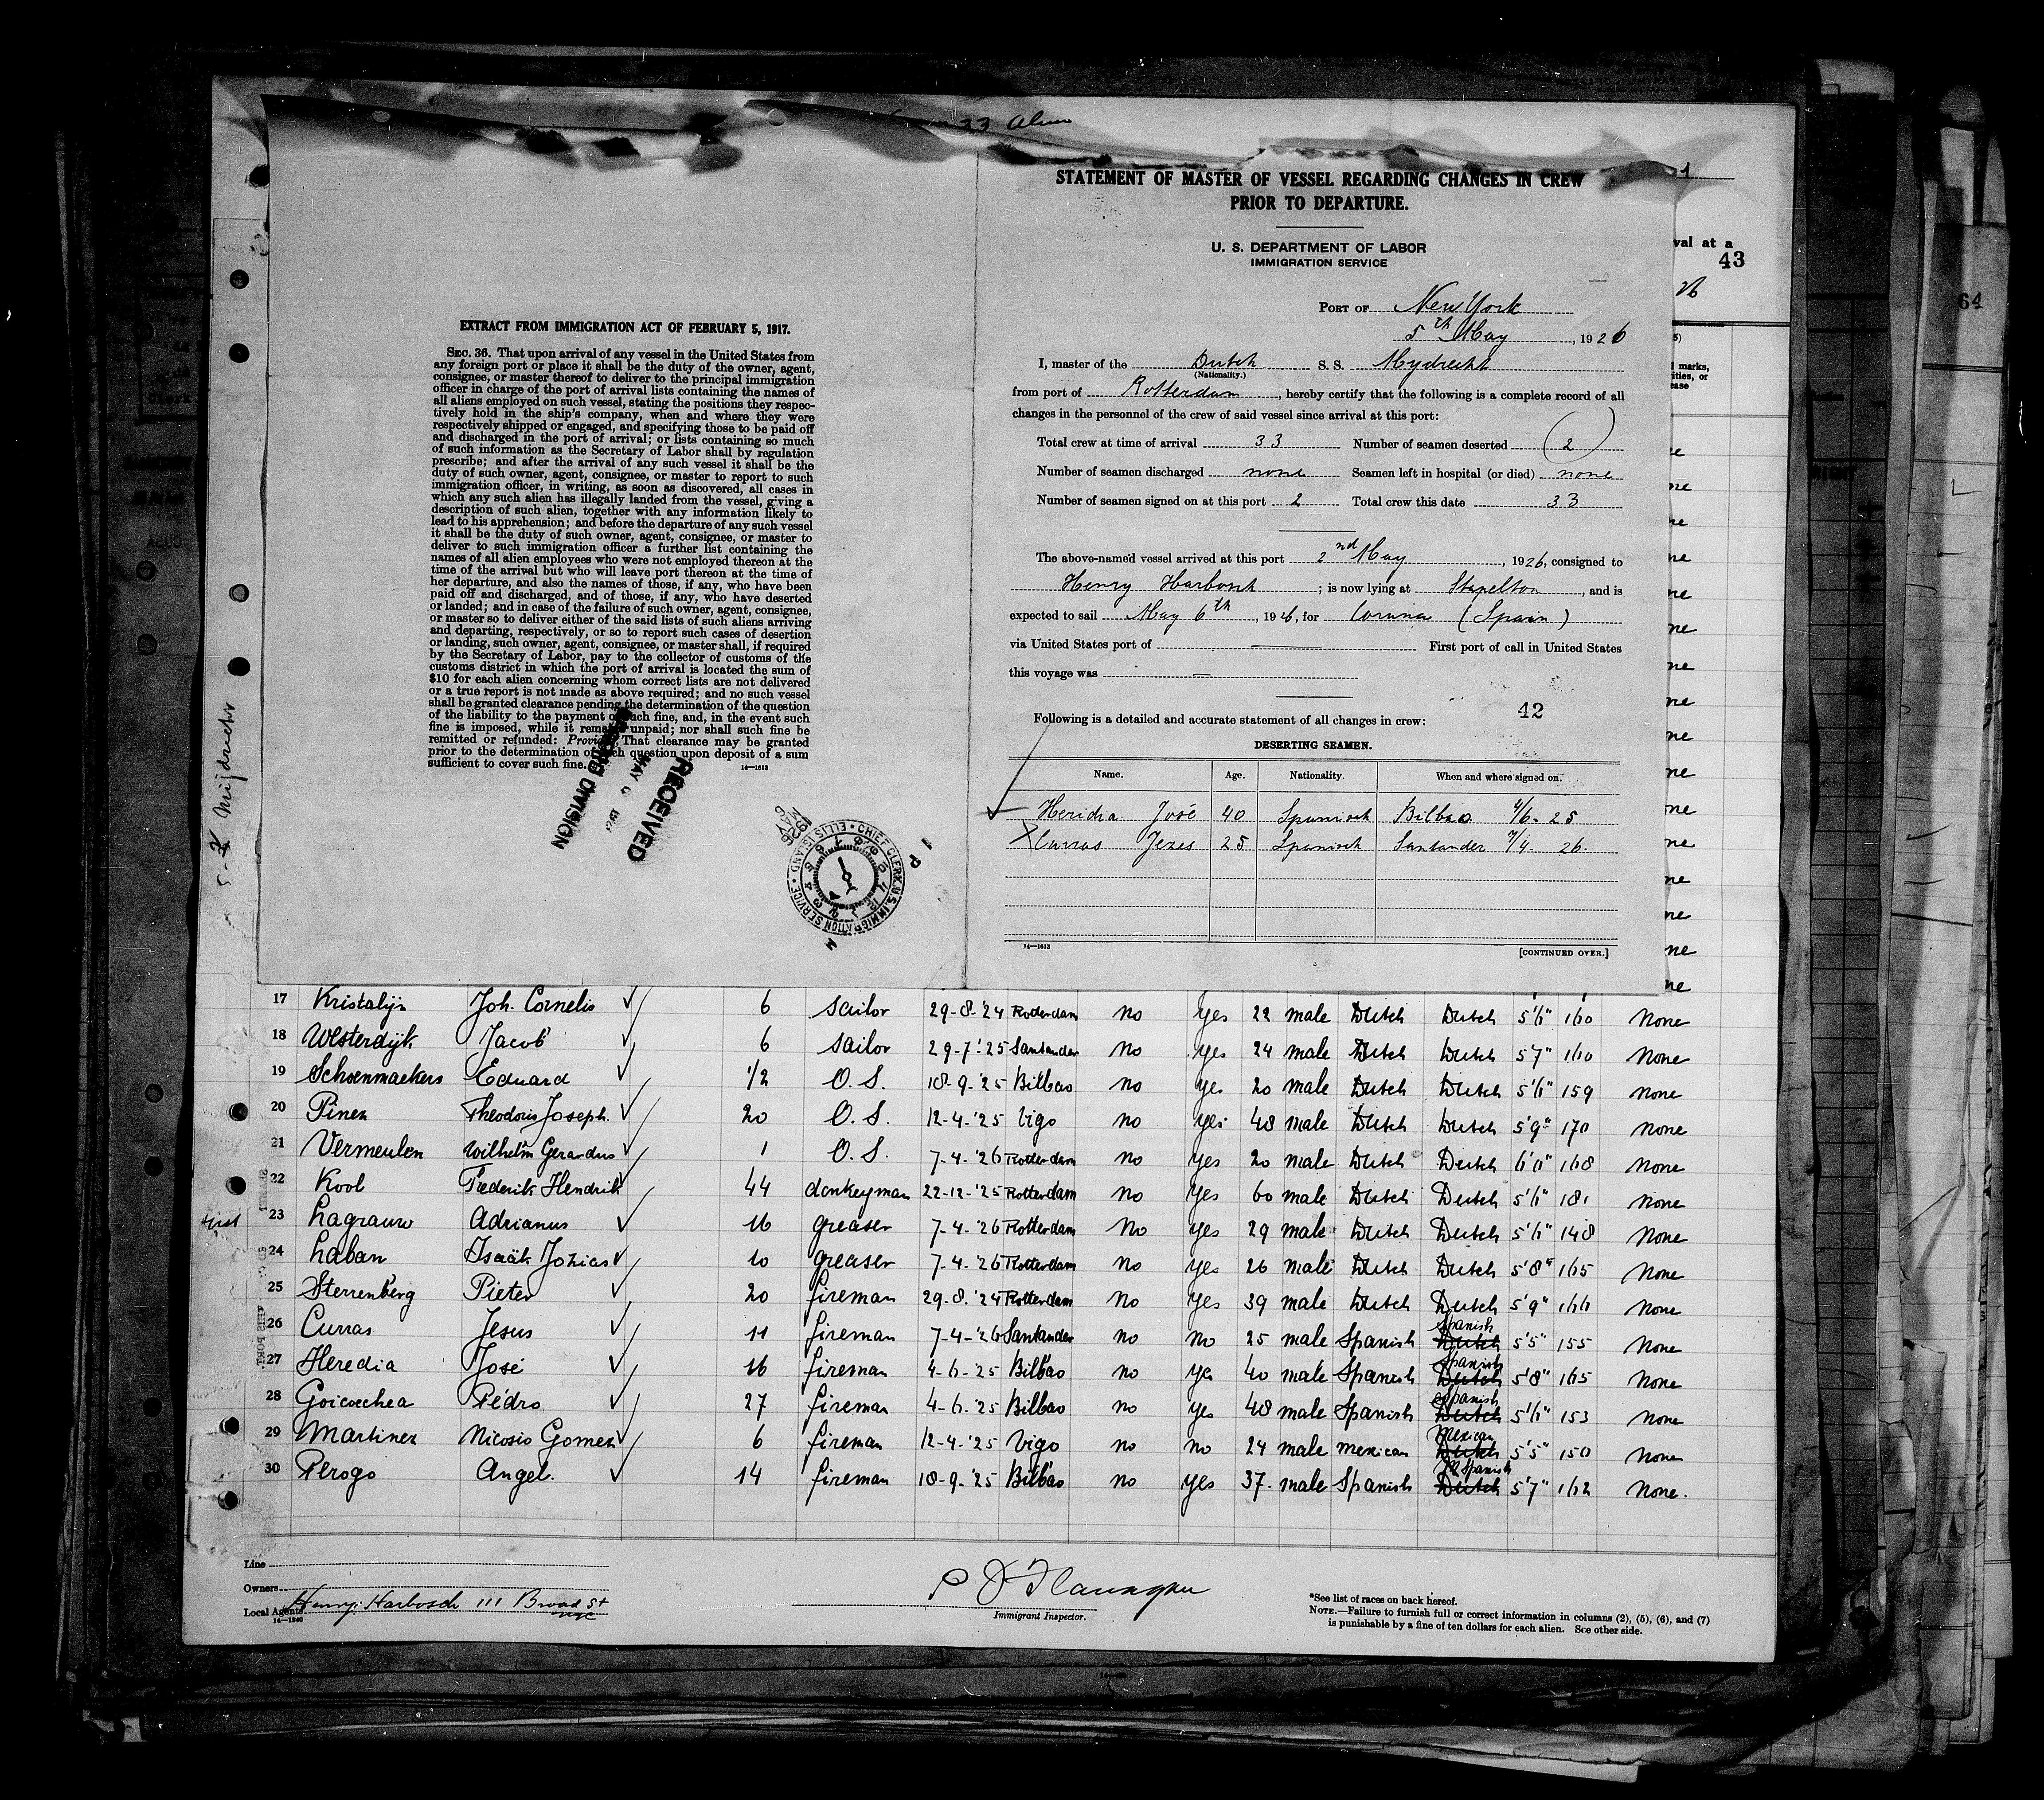 23
EXTRACT FROM IMMIGRATION ACT OF FEBRUARY 5, 1917.
SEC. 36. That upon arrival of any vessel in the United States from
any foreign port or place it shall be the duty of the owner, agent,
consignee, or master thereof to deliver to the principal immigration
officer in charge of the port of arrival lists containing the names of
all aliens employed on such vessel, stating the positions they respec-
tively hold in the ship's company, when and where they were
respectively shipped or engaged, and specifying those to be paid off
and discharged in the port of arrival; or lists containing so much
of such information as the Secretary of Labor shall by regulation
prescribe; and after the arrival of any such vessel it shall be the
duty of such owner, agent, consignee, or master to report to such
immigration officer, in writing, as soon as discovered, all cases in
which any such alien has illegally landed from the vessel, giving a
description of such alien, together with any information likely to
lead to his apprehension; and before the departure of any such vessel
it shall be the duty of such owner, agent, consignee, or master to
deliver to such immigration officer a further list containing the
names of all alien employees who were not employed thereon at the
time of the arrival but who will leave port thereon at the time of
her departure, and also the names of those, if any, who have been
paid off and discharged, and of those, if any, who have deserted
or landed; and in case of the failure of such owner, agent, consignee,
or master so to deliver either of the said lists of such aliens arriving
and departing, respectively, or so to report such cases of desertion
or landing, such owner, agent, consignee, or master shall, if required
by the Secretary of Labor, pay to the collector of customs of the
customs district in which the port of arrival is located the sum of
$10 for each alien concerning whom correct lists are not delivered
or a true report is not made as above required; and no such vessel
shall be granted clearance pending the determination of the question
of the liability to the payment of such fine, and, in the event such
fine is imposed, while it remains unpaid; nor shall such fine be
remitted or refunded: Provided, That clearance may be granted
prior to the determination of such question upon deposit of a sum
sufficient to cover such fine.
14—1613
RECEIVED
MAY 6
DIVISION
MAY 6
1926
CHIEF CLERK, U.S. IMMIGRATION SERVICE • ELLIS ISLAND •
P M
STATEMENT OF MASTER OF VESSEL REGARDING CHANGES IN CREW
PRIOR TO DEPARTURE.
U. S. DEPARTMENT OF LABOR
IMMIGRATION SERVICE
PORT OF New York
5th May, 1926
I, master of the Dutch S. S. Mydrecht
(Nationality.)
from port of Rotterdam, hereby certify that the following is a complete record of all
changes in the personnel of the crew of said vessel since arrival at this port:
Total crew at time of arrival 33 Number of seamen deserted (2)
Number of seamen discharged none Seamen left in hospital (or died) none
Number of seamen signed on at this port 2 Total crew this date 33
The above-named vessel arrived at this port 2nd May, 1926, consigned to
Henry Harbosch; is now lying at Stapelton, and is
expected to sail May 6th, 1926, for Coruna (Spain)
via United States port of First port of call in United States
this voyage was —
42
Following is a detailed and accurate statement of all changes in crew:
DESERTING SEAMEN.
Name. Age. Nationality. When and where signed on.
Heridia José 40 Spanisch Bilbao 4/6. 25
Curras Jezes 25 Spanisch Santander 7/4 26.
14—1613
[CONTINUED OVER.]
1
val at a
43
26
64
marks,
5-2 Mijdrecht
17 Kristalijn Joh. Cornelis 6 sailor 29-8-'24 Rotterdam no yes 22 male Dutch Dutch 5'6" 160 None
18 Westerdijk Jacob 6 sailor 29-7-'25 Santander no yes 24 male Dutch Dutch 5'7" 160 None
19 Schoenmaekers Eduard 1/2 O.S. 18-9-'25 Bilbao no yes 20 male Dutch Dutch 5'6" 159 None
20 Pinex Theodoris Joseph. 20 O.S. 12-4-'25 Vigo no yes 48 male Dutch Dutch 5'9" 170 None
21 Vermeulen Wilhelm Gerardus 1 O.S. 7-4-'26 Rotterdam no yes 20 male Dutch Dutch 6'0" 168 None
22 Kool Frederik Hendrik 44 donkeyman 22-12-'25 Rotterdam no yes 60 male Dutch Dutch 5'6" 181 None
first 23 Lagrauw Adrianus 16 greaser 7-4-'26 Rotterdam No yes 29 male Dutch Dutch 5'6" 148 None
24 Laban Isaäk Jozias 10 greaser 7-4-'26 Rotterdam no yes 26 male Dutch Dutch 5'8" 165 None
25 Sterrenberg Pieter 20 fireman 29-8-'24 Rotterdam no yes 39 male Dutch Dutch 5'9" 166 None
26 Curras Jesus 11 fireman 7-4-'26 Santander no no 25 male Spanish Dutch Spanish 5'5" 155 None
27 Heredia José 16 fireman 4-6-'25 Bilbao no yes 40 male Spanish Dutch Spanish 5'8" 165 None
28 Goicoechea Pédro 27 fireman 4-6-'25 Bilbao no yes 48 male Spanish Dutch Spanish 5'6" 153 None
29 Martinez Nicosio Gomez 6 fireman 12-4-'25 Vigo no no 24 male Mexican Dutch Mexican 5'5" 150 None
30 Perogo Angel. 14 fireman 18-9-'25 Bilbao no yes 37 male Spanish Dutch Spanish 5'7" 162 None.
Line
Owners
Local Agents Henry Harbosch 111 Broad St
NYC
14—1240
Immigrant Inspector.
*See list of races on back hereof.
NOTE.—Failure to furnish full or correct information in columns (2), (5), (6), and (7)
is punishable by a fine of ten dollars for each alien. See other side.